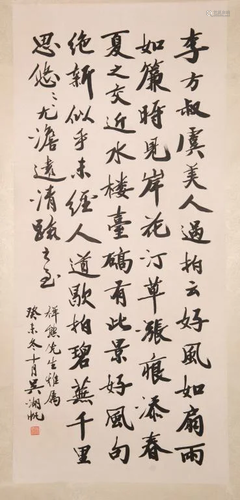 李方叔虞美人過拍云好風如扇雨
如簾時見岸花汀草漲痕添春
夏之交近水樓臺碻有此景好風句
絕新似乎未經人道歇拍碧蕪千里
思悠〻尤澹遠清疏之至
熊先生雅屬
癸未冬十月吳湖帆